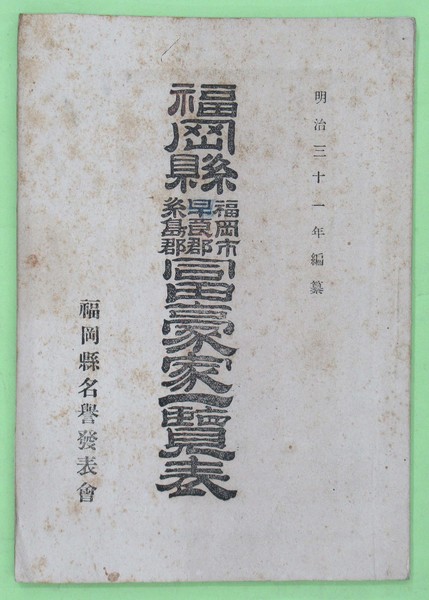 明治三十一年編纂
福岡縣
福岡市
早良郡
糸島郡
富豪家一覽表
福岡縣名譽發表會